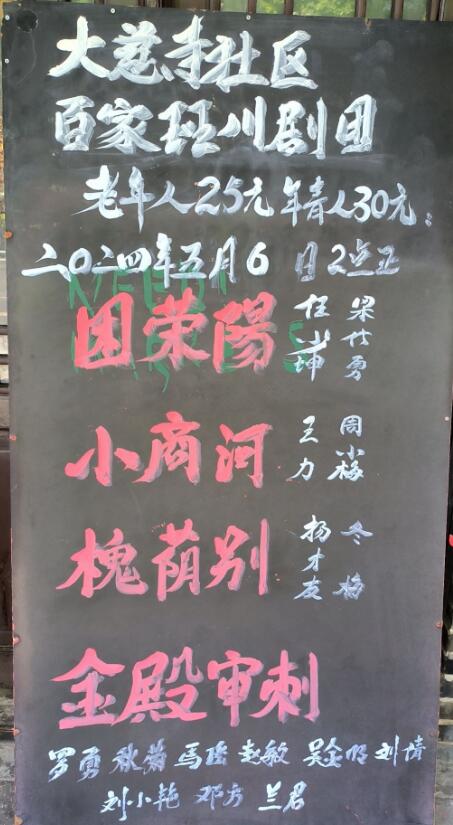 大慈寺社区
百家班川剧团
老年人25元年青人30元：
二〇二四年五月6日2点正
困荣陽 任坤 梁仕勇
小商河 王力 周小梅
槐荫别 扬才友 冬梅
金殿审刺
罗勇 秋菊 马 赵敏 吴 刘情
刘小艳 邓方 兰君